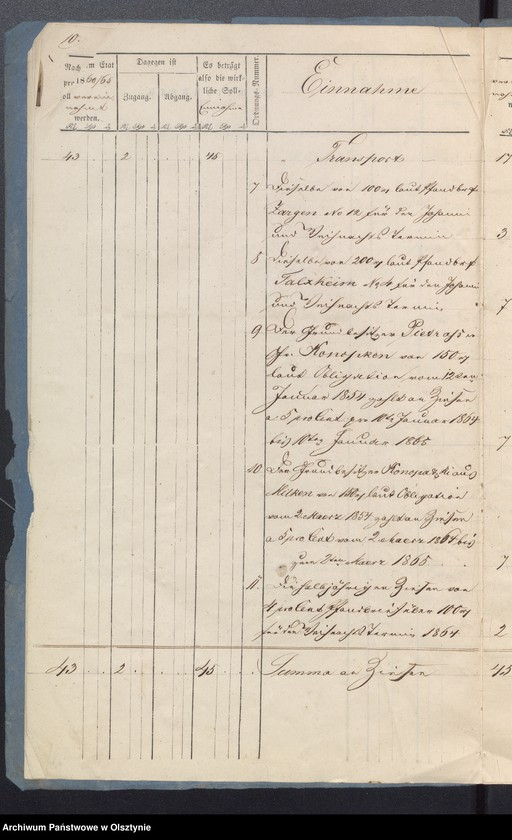 10.
Nach dem Etat
pro 1860/65
soll vereinnahmt
werden.
Dagegen ist
Zugang.
Abgang.
Es beträgt
also die wirkliche Soll-
Einnahme
Ordnungs-Nummer.
Einnahme
43 2 45 Transport 17
7 Dieselbe von 100 laut Pfandbrief
No 12 für den Johanni
und Weihnachts Termin 3
8 Dieselbe von 200 laut Pfandbrief
No 4 für den Johanni
und Weihnachts Termin 7
9 Der Grundbesitzer
Konopken von 150
laut Obligation vom 12ten
Januar 1854 zahlt an Zinsen
a 5 procent pro 10ten Januar 1864
bis 10ten Januar 1865 7
10 Der Grundbesitzer aus
Milken von laut Obligation
vom 2 Maerz 1854 zahlt an Zinsen
a 5 procent vom 2 Maerz 1864 bis
zum 2ten Maerz 1865 7
11 Die halbjährigen Zinsen von
4 procent Pfandbrief über 100
für den Weihnachts Termin 1864 2
43 2 45 Summa an Zinsen 45
Archiwum Państwowe w Olsztynie